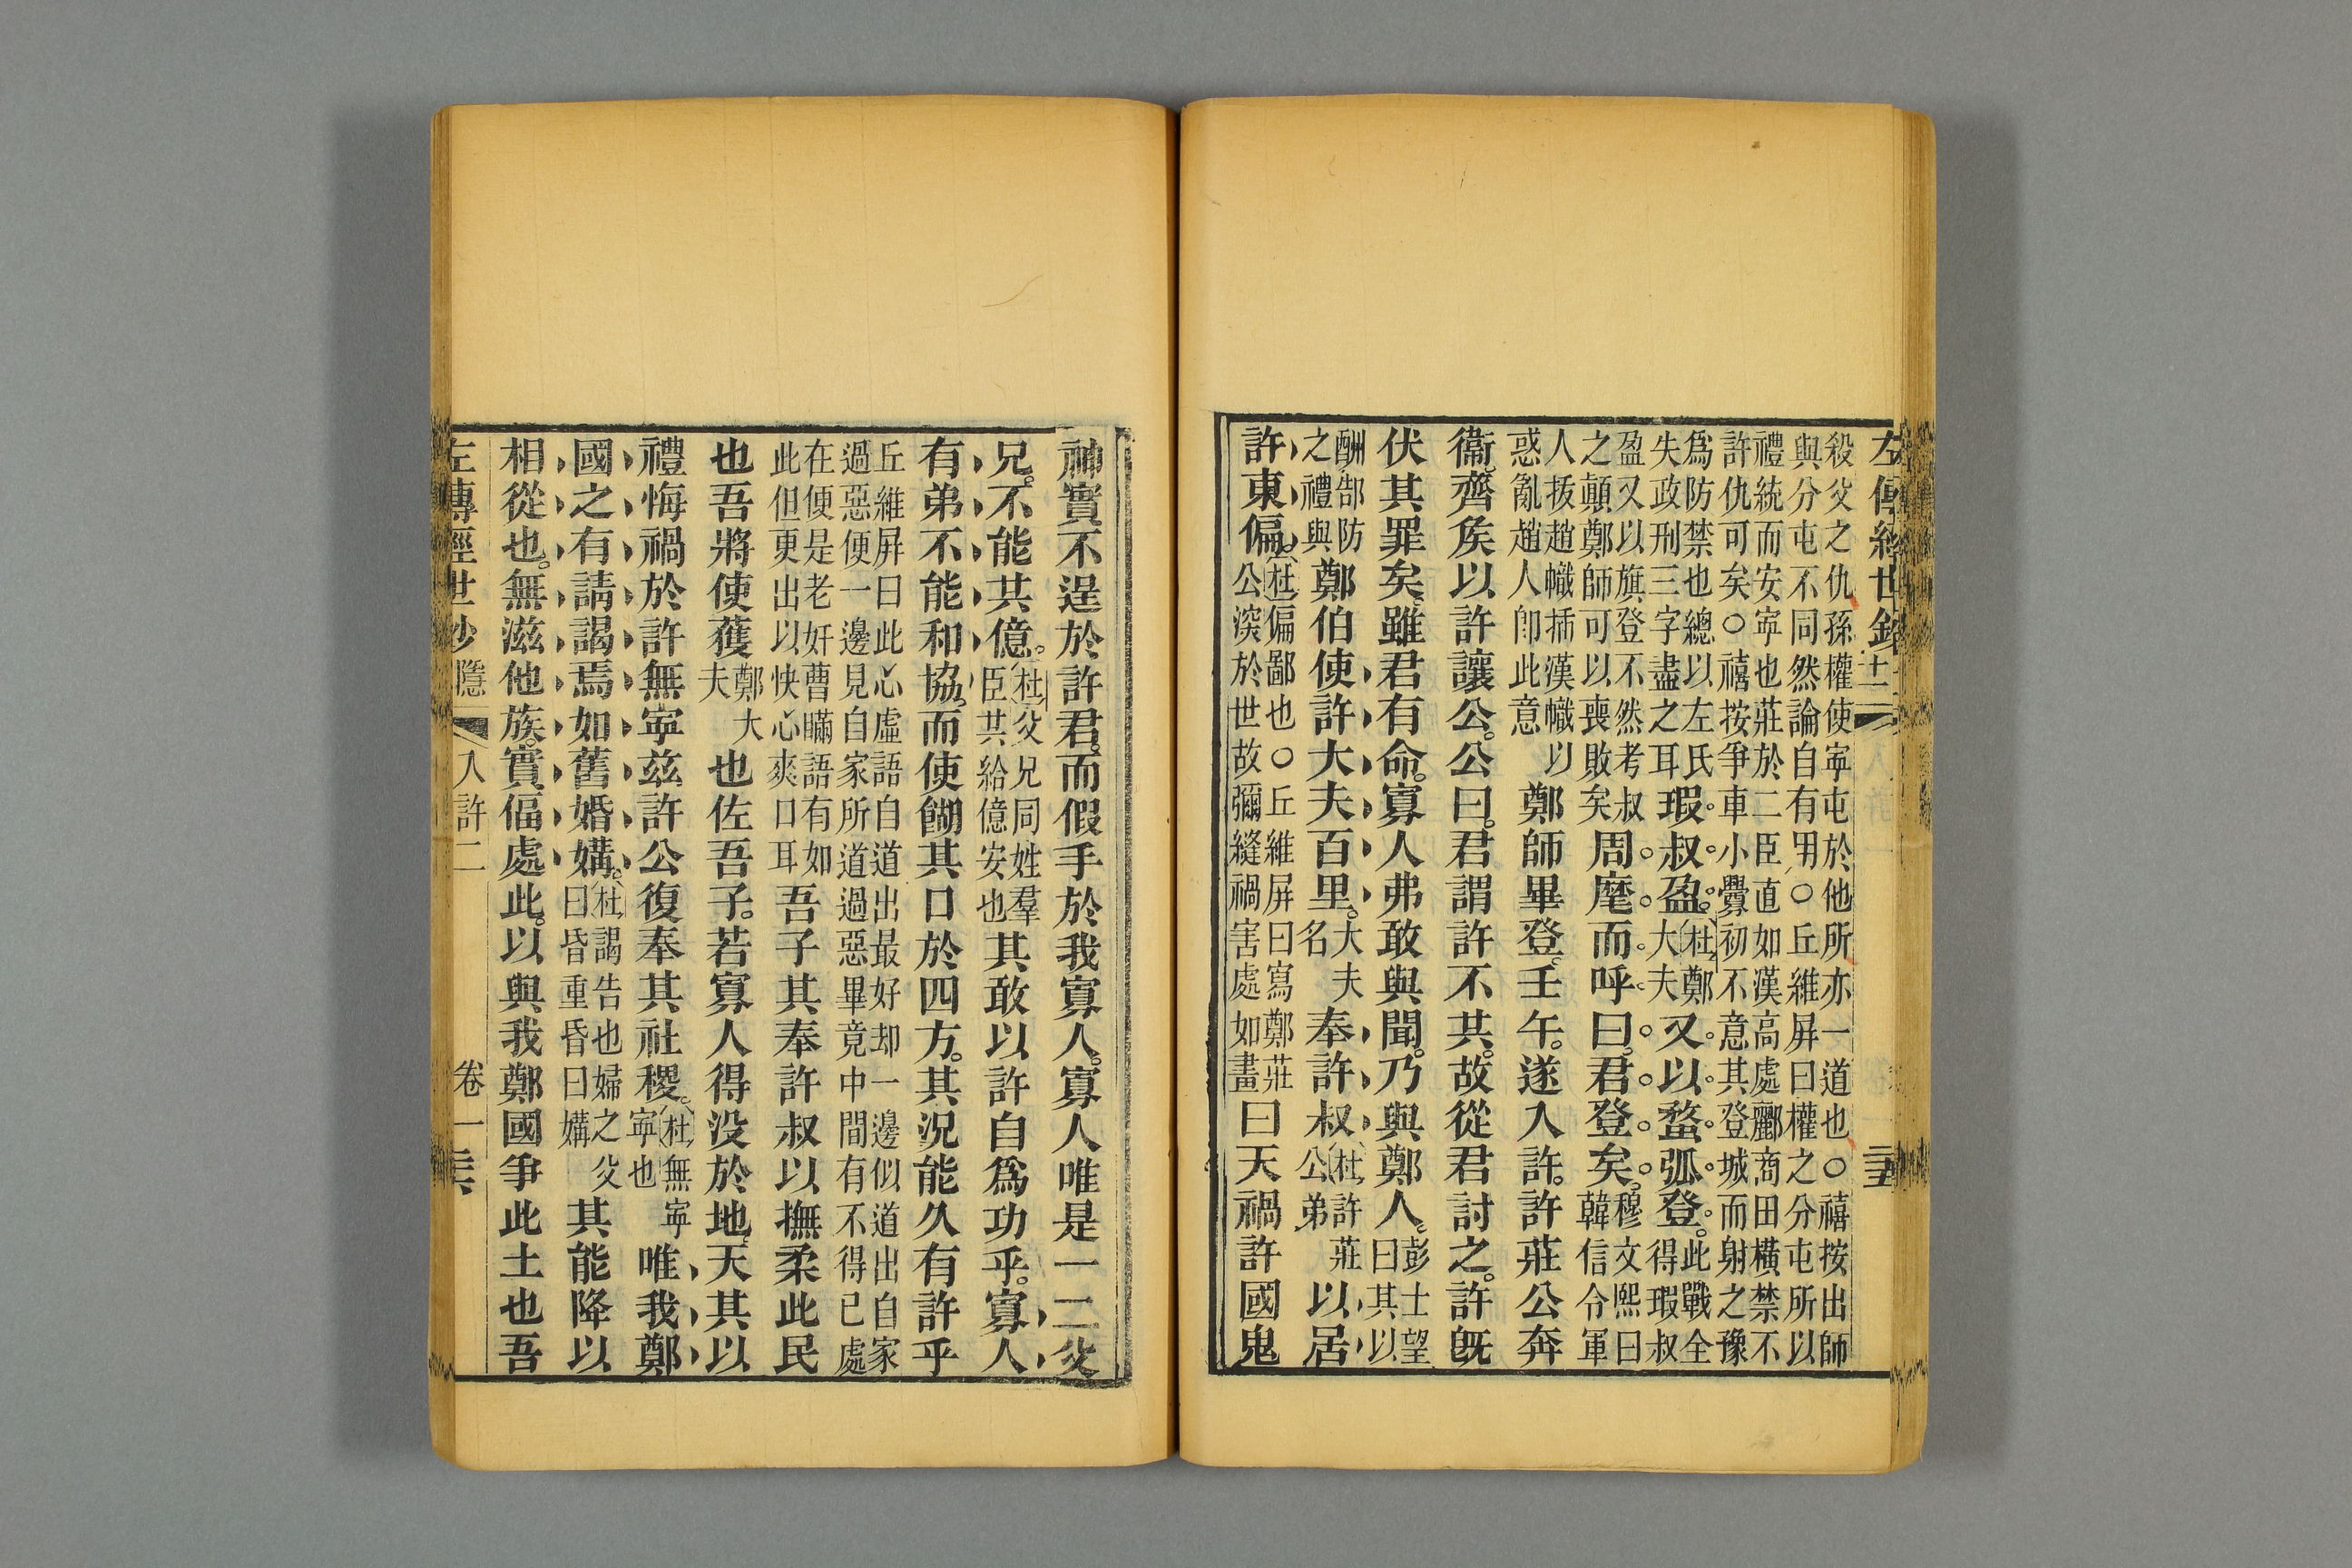 左傳經世鈔
殺父之仇孫權使寧屯於他所亦一道也○禧按出師
與分屯不同然論自有男○丘維屏曰權之分屯所以
禮統而安寧也莊於二臣直如漢高處酈商田橫禁不
許仇可矣○禧按爭車小釁初不意其登城而射之豫
爲防禁也總以左氏失政刑三字盡之耳瑕叔盈。杜鄭大夫又以蝥弧登。此戰全得瑕叔
盈又以旗登不然考叔之顛鄭師可以喪敗矣周麾而呼曰。君登矣。穆文熙曰韓信令軍
人拔趙幟插漢幟以惑亂趙人卽此意鄭師畢登。壬午。遂入許。許莊公奔
衞。齊矦以許讓公。公曰。君謂許不共。故從君討之。許旣
伏其罪矣。雖君有命。寡人弗敢與聞。乃與鄭人。彭士望曰其以
酬郜防之禮與鄭伯使許大夫百里。大夫名奉許叔杜許莊公弟以居
許東偏。杜偏鄙也○丘維屏曰寫鄭莊公深於世故彌縫禍害處如畫曰天禍許國鬼
神實不逞於許君。而假手於我寡人。寡人唯是一二父
兄。不能共億。杜父兄同姓羣臣共給億安也其敢以許自爲功乎。寡人
有弟不能和協。而使餬其口於四方。其況能久有許乎
丘維屏曰此心虛語自道出最好却一邊似道出自家
過惡便一邊見自家所道過惡畢竟中間有不得已處
在便是老奸曹瞞語有如此但更出以快心爽口耳吾子其奉許叔以撫柔此民
也吾將使蒦鄭大夫也佐吾子。若寡人得没於地。天其以
禮悔禍於許無寧茲許公復奉其社稷。杜無寧寧也唯我鄭
國之有請謁焉如舊婚媾。杜謁告也婦之父曰昏重昏曰媾其能降以
相從也。無滋他族。實偪處此。以與我鄭國爭此土也吾
左傳經世鈔 隱 入許二 卷一 三六